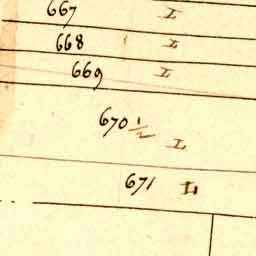 667 I
668 I
669 I
670 1/2 I
671 I